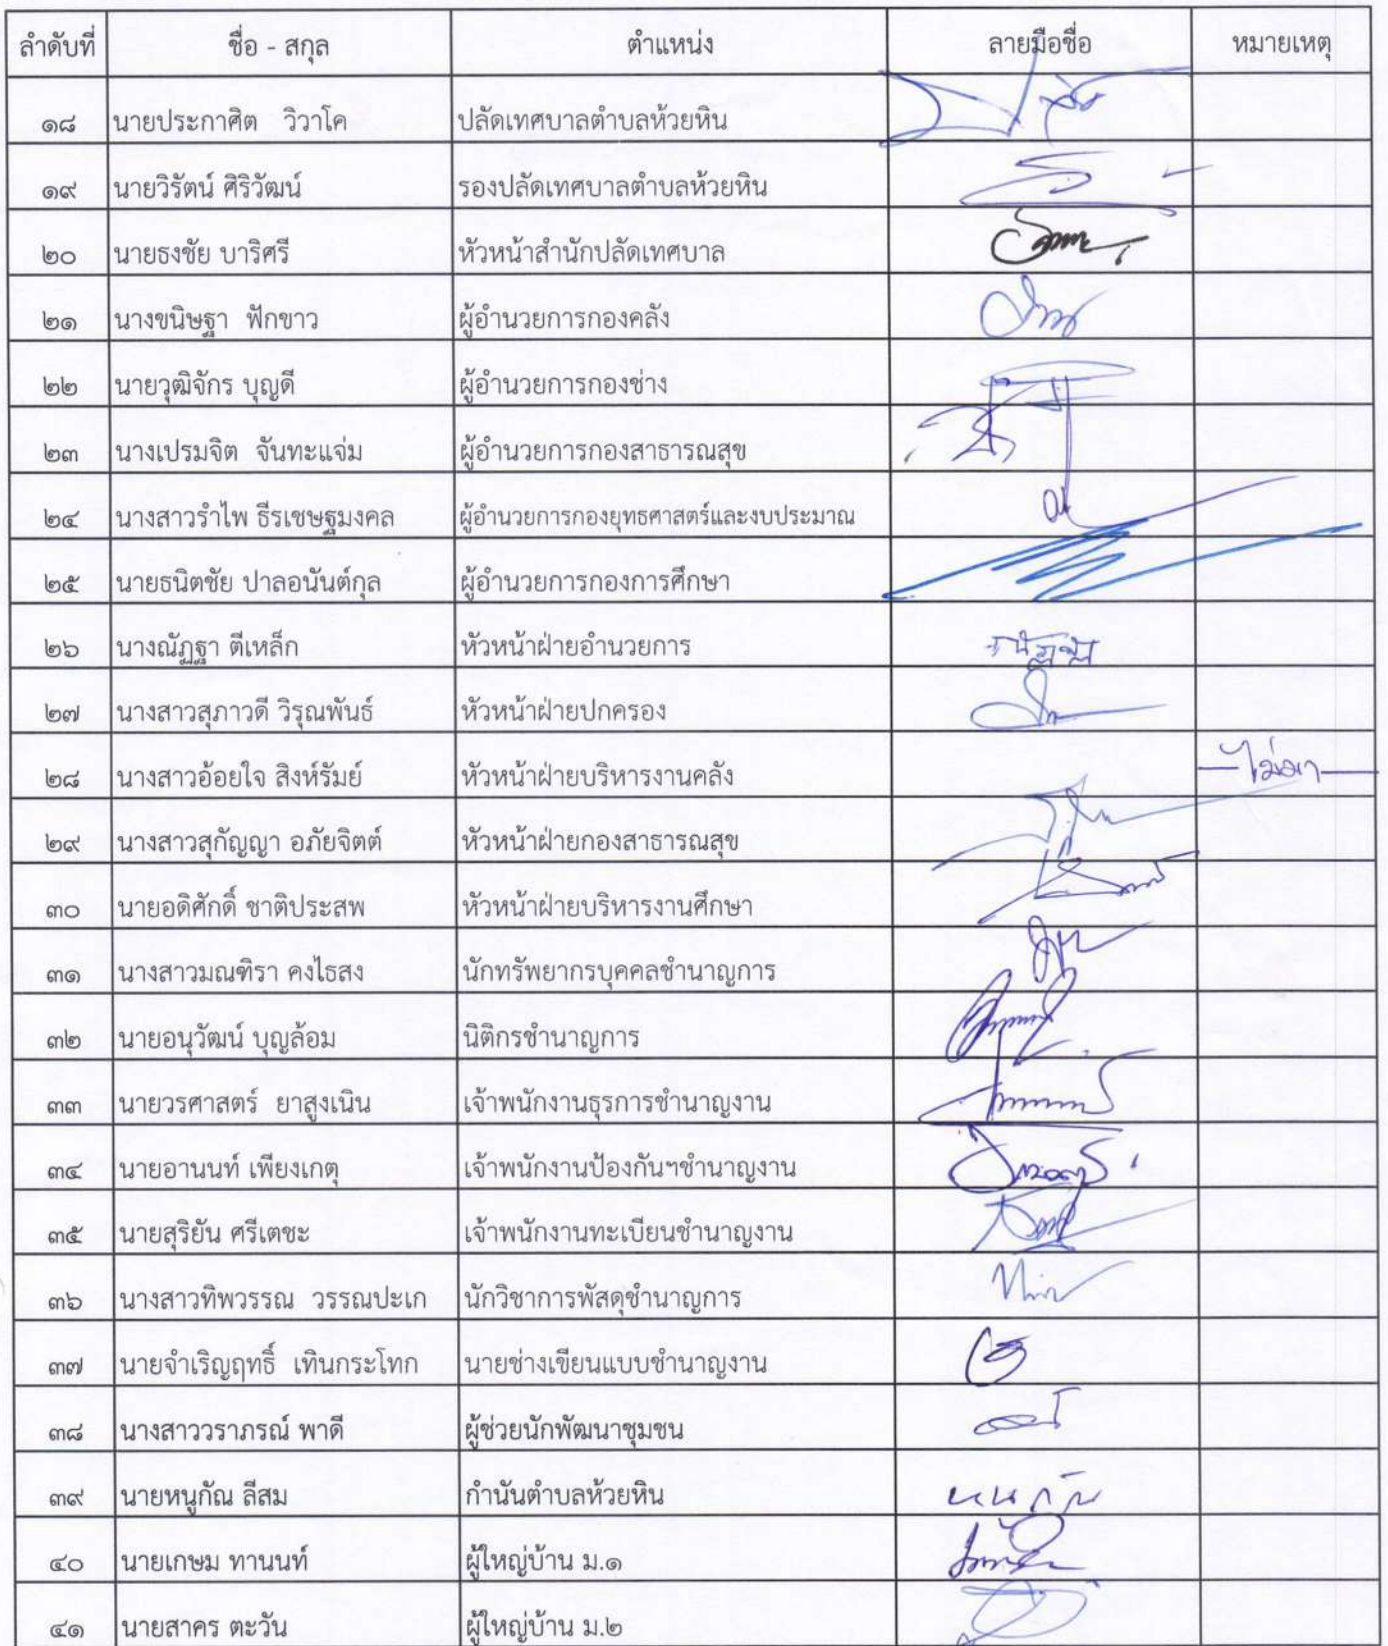 ลำดับที่ ชื่อ - สกุล ตำแหน่ง ลายมือชื่อ หมายเหตุ
๑๘ นายประกาศิต วิวาโค ปลัดเทศบาลตำบลห้วยหิน
๑๙ นายวิรัตน์ ศิริวัฒน์ รองปลัดเทศบาลตำบลห้วยหิน
๒๐ นายธงชัย บาริศรี หัวหน้าสำนักปลัดเทศบาล
๒๑ นางขนิษฐา ฟักขาว ผู้อำนวยการกองคลัง
๒๒ นายวุฒิจักร บุญดี ผู้อำนวยการกองช่าง
๒๓ นางเปรมจิต จันทะแจ่ม ผู้อำนวยการกองสาธารณสุข
๒๔ นางสาวรำไพ ธีรเชษฐมงคล ผู้อำนวยการกองยุทธศาสตร์และงบประมาณ
๒๕ นายธนิตชัย ปาลอนันต์กุล ผู้อำนวยการกองการศึกษา
๒๖ นางณัฏฐา ตีเหล็ก หัวหน้าฝ่ายอำนวยการ ณัฏฐา
๒๗ นางสาวสุภาวดี วิรุณพันธ์ หัวหน้าฝ่ายปกครอง
๒๘ นางสาวอ้อยใจ สิงห์รัมย์ หัวหน้าฝ่ายบริหารงานคลัง ไม่มา
๒๙ นางสาวสุกัญญา อภัยจิตต์ หัวหน้าฝ่ายกองสาธารณสุข
๓๐ นายอดิศักดิ์ ชาติประสพ หัวหน้าฝ่ายบริหารงานศึกษา
๓๑ นางสาวมณฑิรา คงไธสง นักทรัพยากรบุคคลชำนาญการ
๓๒ นายอนุวัฒน์ บุญล้อม นิติกรชำนาญการ
๓๓ นายวรศาสตร์ ยาสูงเนิน เจ้าพนักงานธุรการชำนาญงาน
๓๔ นายอานนท์ เพียงเกตุ เจ้าพนักงานป้องกันฯชำนาญงาน
๓๕ นายสุริยัน ศรีเตชะ เจ้าพนักงานทะเบียนชำนาญงาน
๓๖ นางสาวทิพวรรณ วรรณปะเก นักวิชาการพัสดุชำนาญการ
๓๗ นายจำเริญฤทธิ์ เทินกระโทก นายช่างเขียนแบบชำนาญงาน
๓๘ นางสาววราภรณ์ พาดี ผู้ช่วยนักพัฒนาชุมชน
๓๙ นายหนูกัณ ลีสม กำนันตำบลห้วยหิน
๔๐ นายเกษม ทานนท์ ผู้ใหญ่บ้าน ม.๑
๔๑ นายสาคร ตะวัน ผู้ใหญ่บ้าน ม.๒